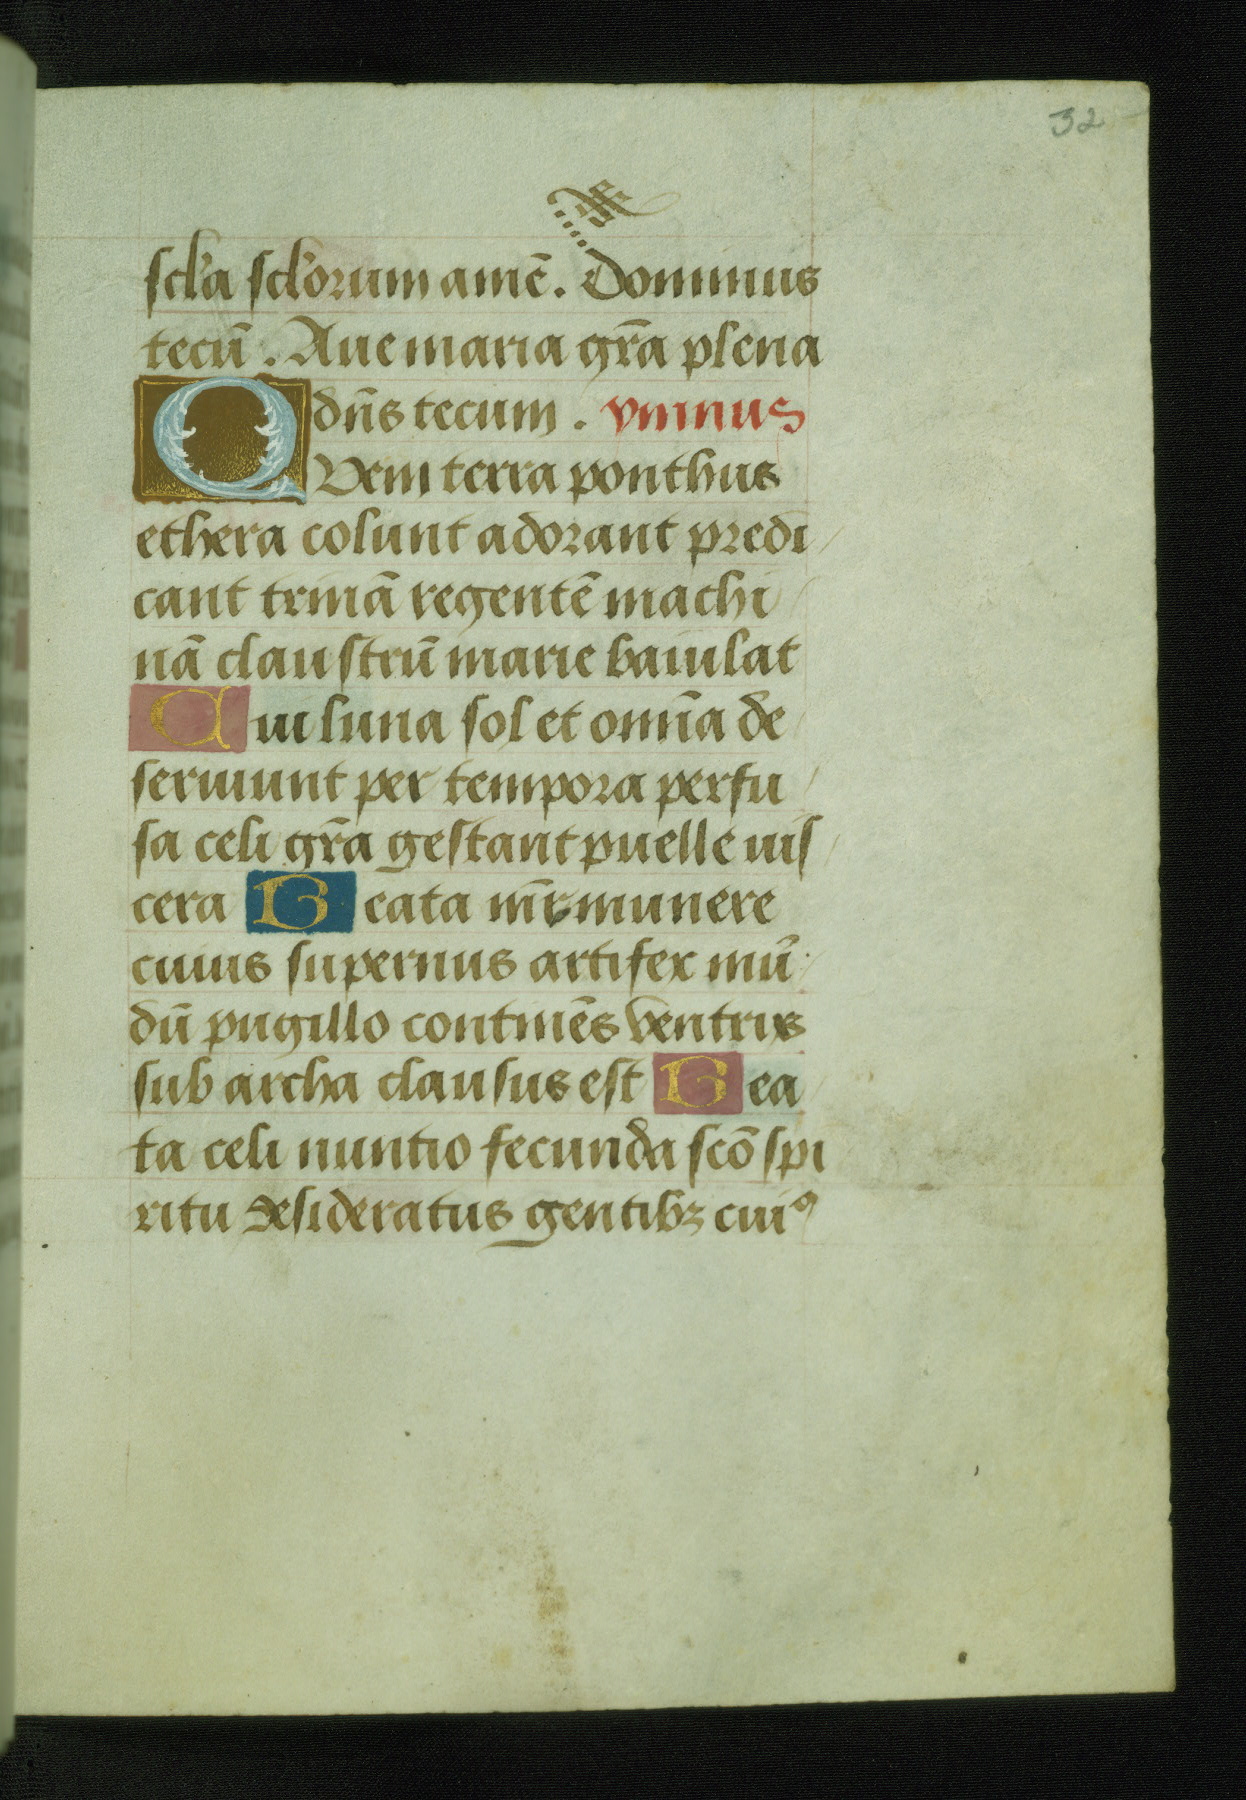 32
scl'a scl'orum amē. Dominus
tecū. Aue maria gr̄a plena
dn̄s tecum. ymnus
QVem terra ponthus
ethera colunt adorant predi
cant trinā regentē machi
nā claustrū marie baiulat
Cui luna sol et omīa de
seruiunt per tempora perfu
sa celi gr̄a gestant puelle uis
cera Beata mr̄ munere
cuius supernus artifex mū
dū pugillo continēs ventris
sub archa clausus est Bea
ta celi nuntio fecunda scō spi
ritu desideratus gentibꝫ cuiꝰ